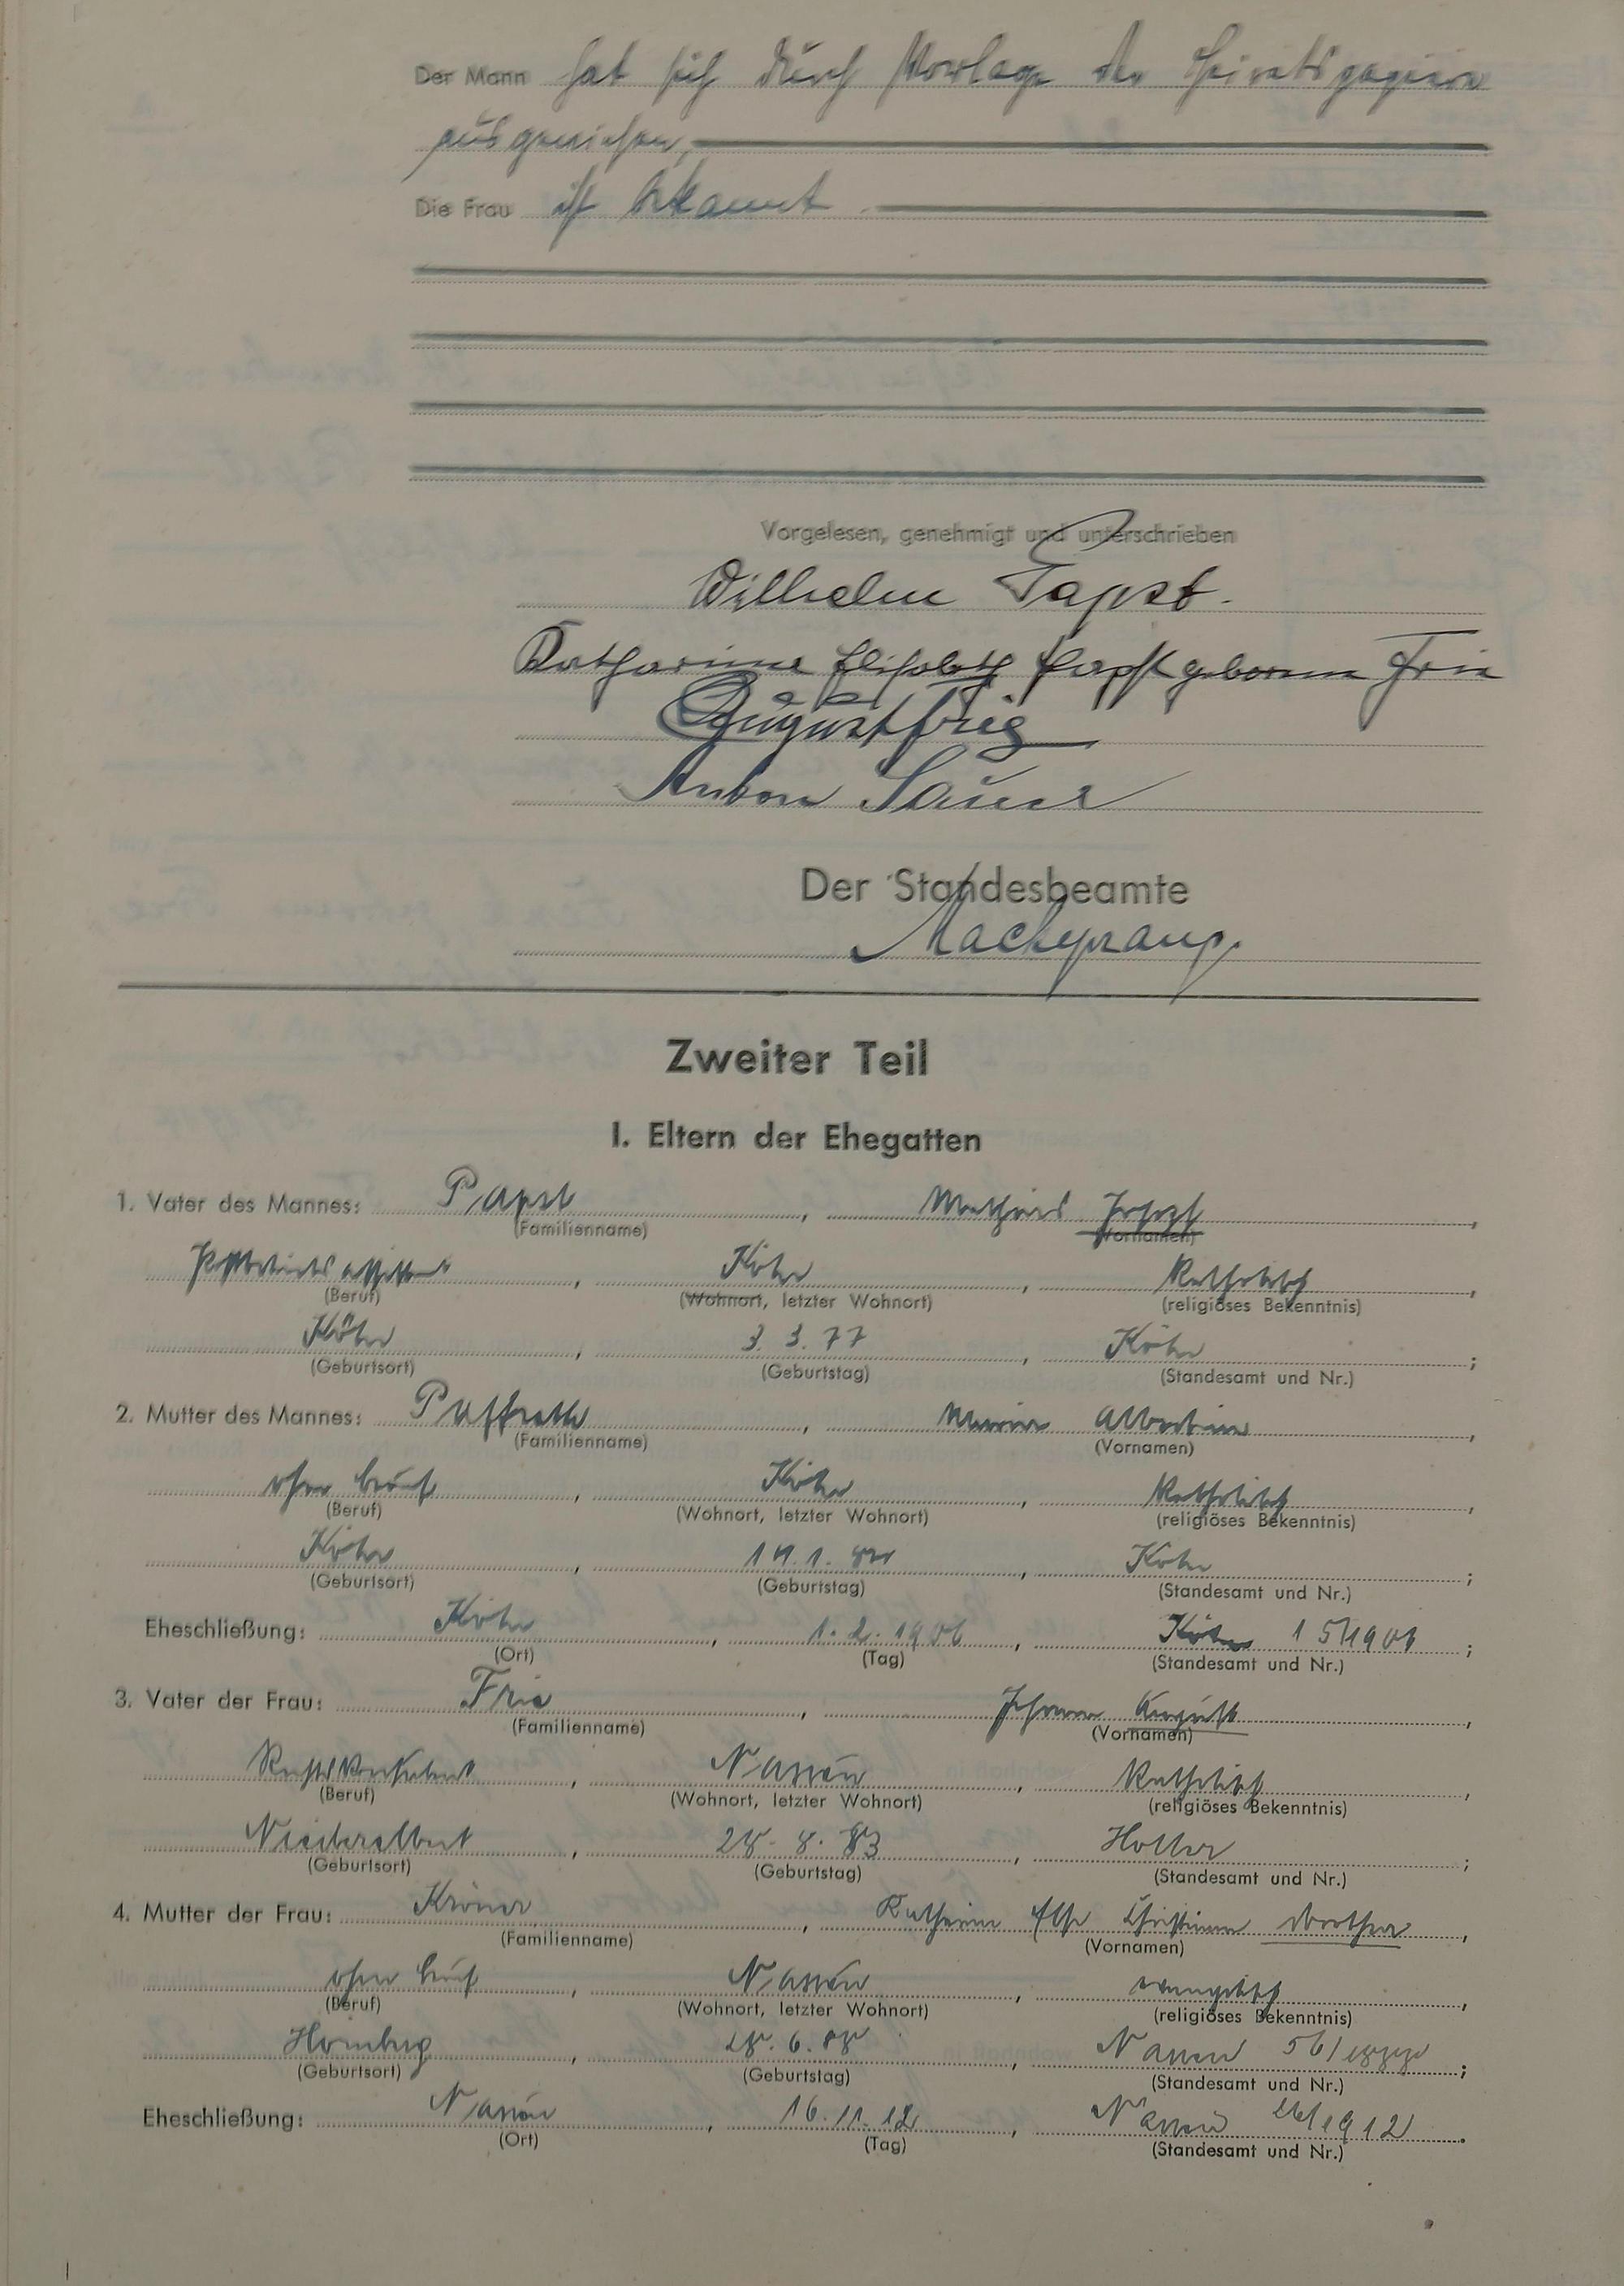 Der Mann hat sich durch Vorlage der Heiratspapiere
ausgewiesen,
Die Frau ist bekannt
Vorgelesen, genehmigt und unterschrieben
Wilhelm Papst.
Katharina Elisabeth Papst geborene Frie
August Frie
Anton Sauer
Der Standesbeamte
Zweiter Teil
I. Eltern der Ehegatten
1. Vater des Mannes: Papst, Mathias Joseph
(Familienname) (Vornamen)
Köln, Katholisch,
(Beruf) (Wohnort, letzter Wohnort) (religiöses Bekenntnis)
Köln, 3. 3. 77, Köln;
(Geburtsort) (Geburtstag) (Standesamt und Nr.)
2. Mutter des Mannes: Paffrath, Maria Albertine,
(Familienname) (Vornamen)
ohne Beruf, Köln, Katholisch,
(Beruf) (Wohnort, letzter Wohnort) (religiöses Bekenntnis)
Köln, Köln;
(Geburtsort) (Geburtstag) (Standesamt und Nr.)
Eheschließung: Köln, 1. 2. 1906, Köln 15/1906;
(Ort) (Tag) (Standesamt und Nr.)
3. Vater der Frau: Frie, Johann August,
(Familienname) (Vornamen)
Nassau, Katholisch,
(Beruf) (Wohnort, letzter Wohnort) (religiöses Bekenntnis)
Niederelbert, 28. 8. 83, Holler;
(Geburtsort) (Geburtstag) (Standesamt und Nr.)
4. Mutter der Frau: Katharina Else Christiane Dorothea,
(Familienname) (Vornamen)
ohne Beruf, Nassau, evangelisch,
(Beruf) (Wohnort, letzter Wohnort) (religiöses Bekenntnis)
28. 6. 88, Nassau;
(Geburtsort) (Geburtstag) (Standesamt und Nr.)
Eheschließung: Nassau, 16. 11. 12, Nassau
(Ort) (Tag) (Standesamt und Nr.)